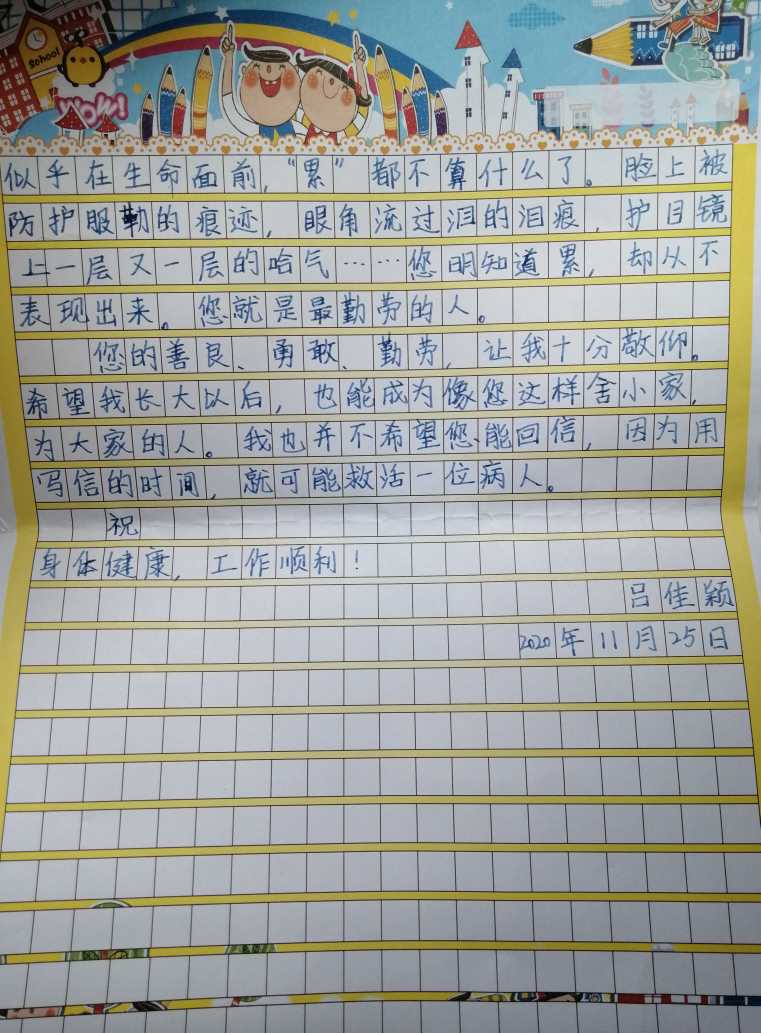 school
WOW!
似乎在生命面前，“累”都不算什么了。脸上被
防护服勒的痕迹，眼角流过泪的泪痕，护目镜
上一层又一层的哈气……您明知道累，却从不
表现出来。您就是最勤劳的人。
您的善良、勇敢、勤劳，让我十分敬仰。
希望我长大以后，也能成为像您这样舍小家，
为大家的人。我也并不希望您能回信，因为用
写信的时间，就可能救活一位病人。
祝
身体健康，工作顺利！
吕佳颖
2020年11月25日